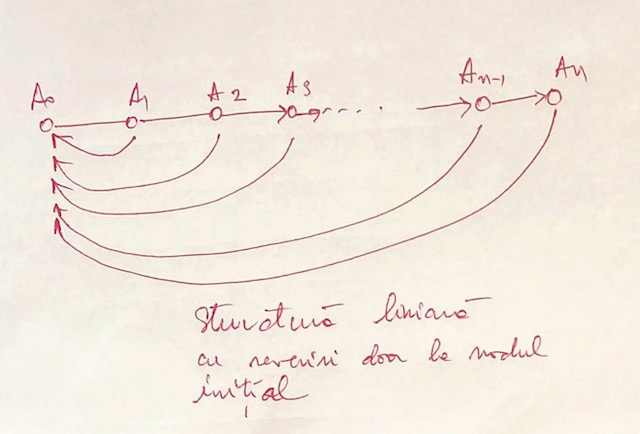 A₀ A₁ A2 A3 Aₙ₋₁ Aₙ
Structură liniară
cu reveniri doar la nodul
inițial